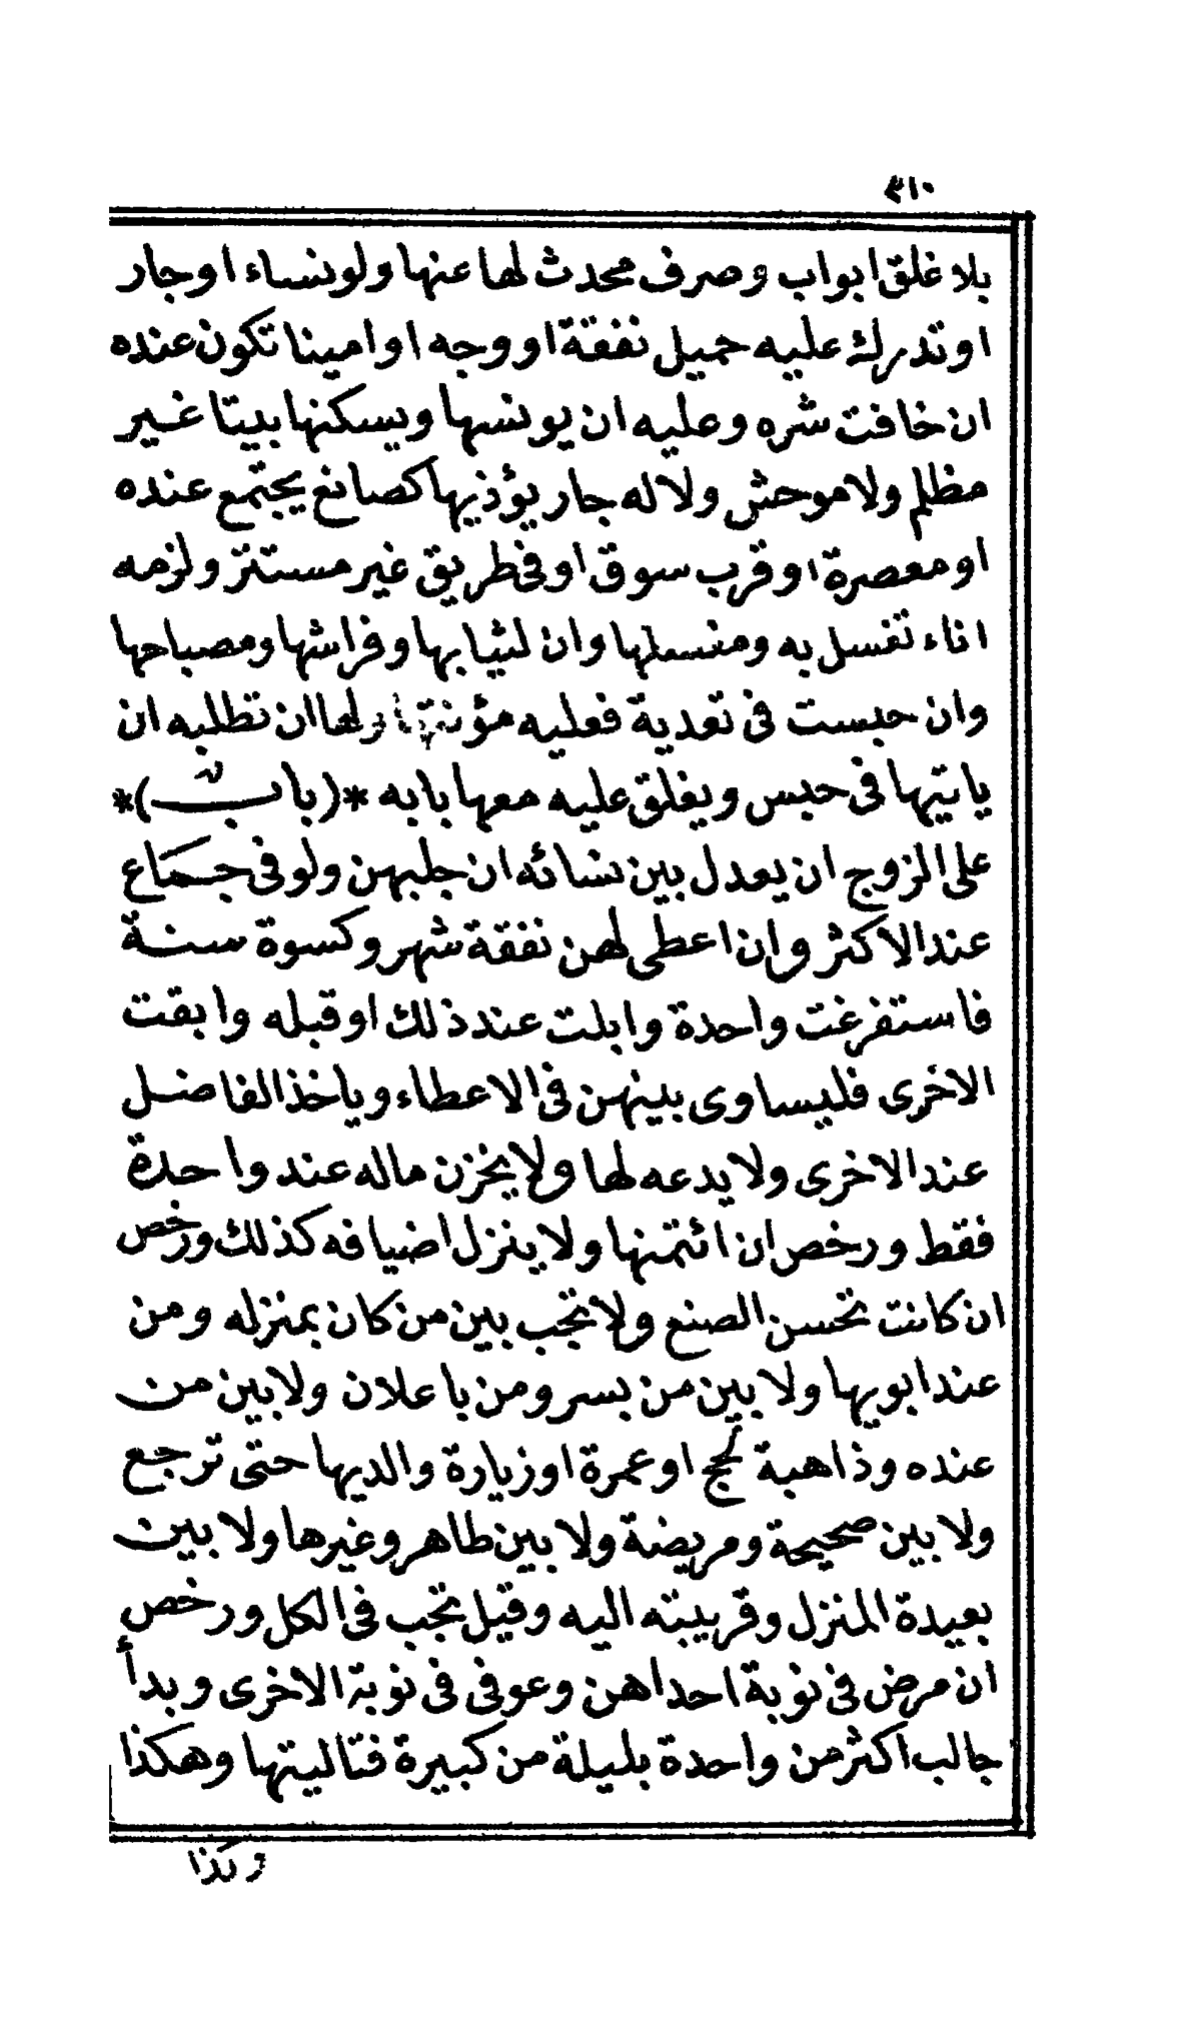 ٣١٠
بلا غلق ابواب وصرف محدث لها عنها ولو نساء او جار
او تدرك عليه حميل نفقة او وجه او امينا تكون عنده
ان خافت شره وعليه ان يونسها ويسكنها بيتا غير
مظلم ولا موحش ولا له جار يؤذيها كصانع يجتمع عنده
او معصرة او قرب سوق او فى طريق غير مستتر ولزمه
اناء تغسل به ومنسلها وان لثيابها وفراشها ومصباحها
وان حبست فى تعدية فعليه مؤنتها ولها ان تطلبه ان
ياتيها فى حبس ويغلق عليه معها بابه *(باب)*
على الزوج ان يعدل بين نسائه ان جلبهن ولو فى جماع
عند الاكثر وان اعطى لهن نفقة شهر وكسوة سنة
فاستفرغت واحدة وابلت عند ذلك او قبله وابقت
الاخرى فليساوى بينهن فى الاعطاء وياخذ الفاضل
عند الاخرى ولا يدعه لها ولا يخزن ماله عند واحدة
فقط ورخص ان ائتمنها ولا ينزل اضيافه كذلك ورخص
ان كانت تحسن الصنع ولا تجب بين من كان بمنزله ومن
عند ابويها ولا بين من بسر ومن باعلان ولا بين من
عنده وذاهبة لحج او عمرة او زيارة والديها حتى ترجع
ولا بين صحيحة ومريضة ولا بين طاهر وغيرها ولا بين
بعيدة المنزل وقريبته اليه وقيل تجب فى الكل ورخص
ان مرض فى نوبة احداهن وعوفى فى نوبة الاخرى وبدأ
جالب اكثر من واحدة بليلة من كبيرة فتاليتها وهكذا
وكذا